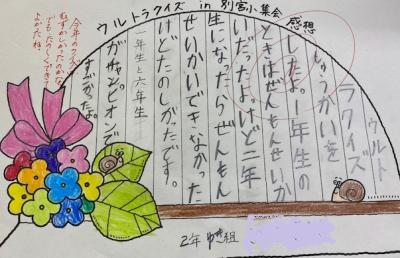 ウルトラクイズ in 別宮小集会
感想
ウルト
ラクイズ
しゅうかいを
したよ。1年生の
ときはぜんもんせいか
いだったよ。けど二年
生になったらぜんもん
せいかいできなかった
けどたのしかったです。
一年生と六年生
がチャンピオンで
すごかたよ。
今年のクイズ
むずかしかったのかな。
でもたのしくできて
よかったね。
2年 ゆき組